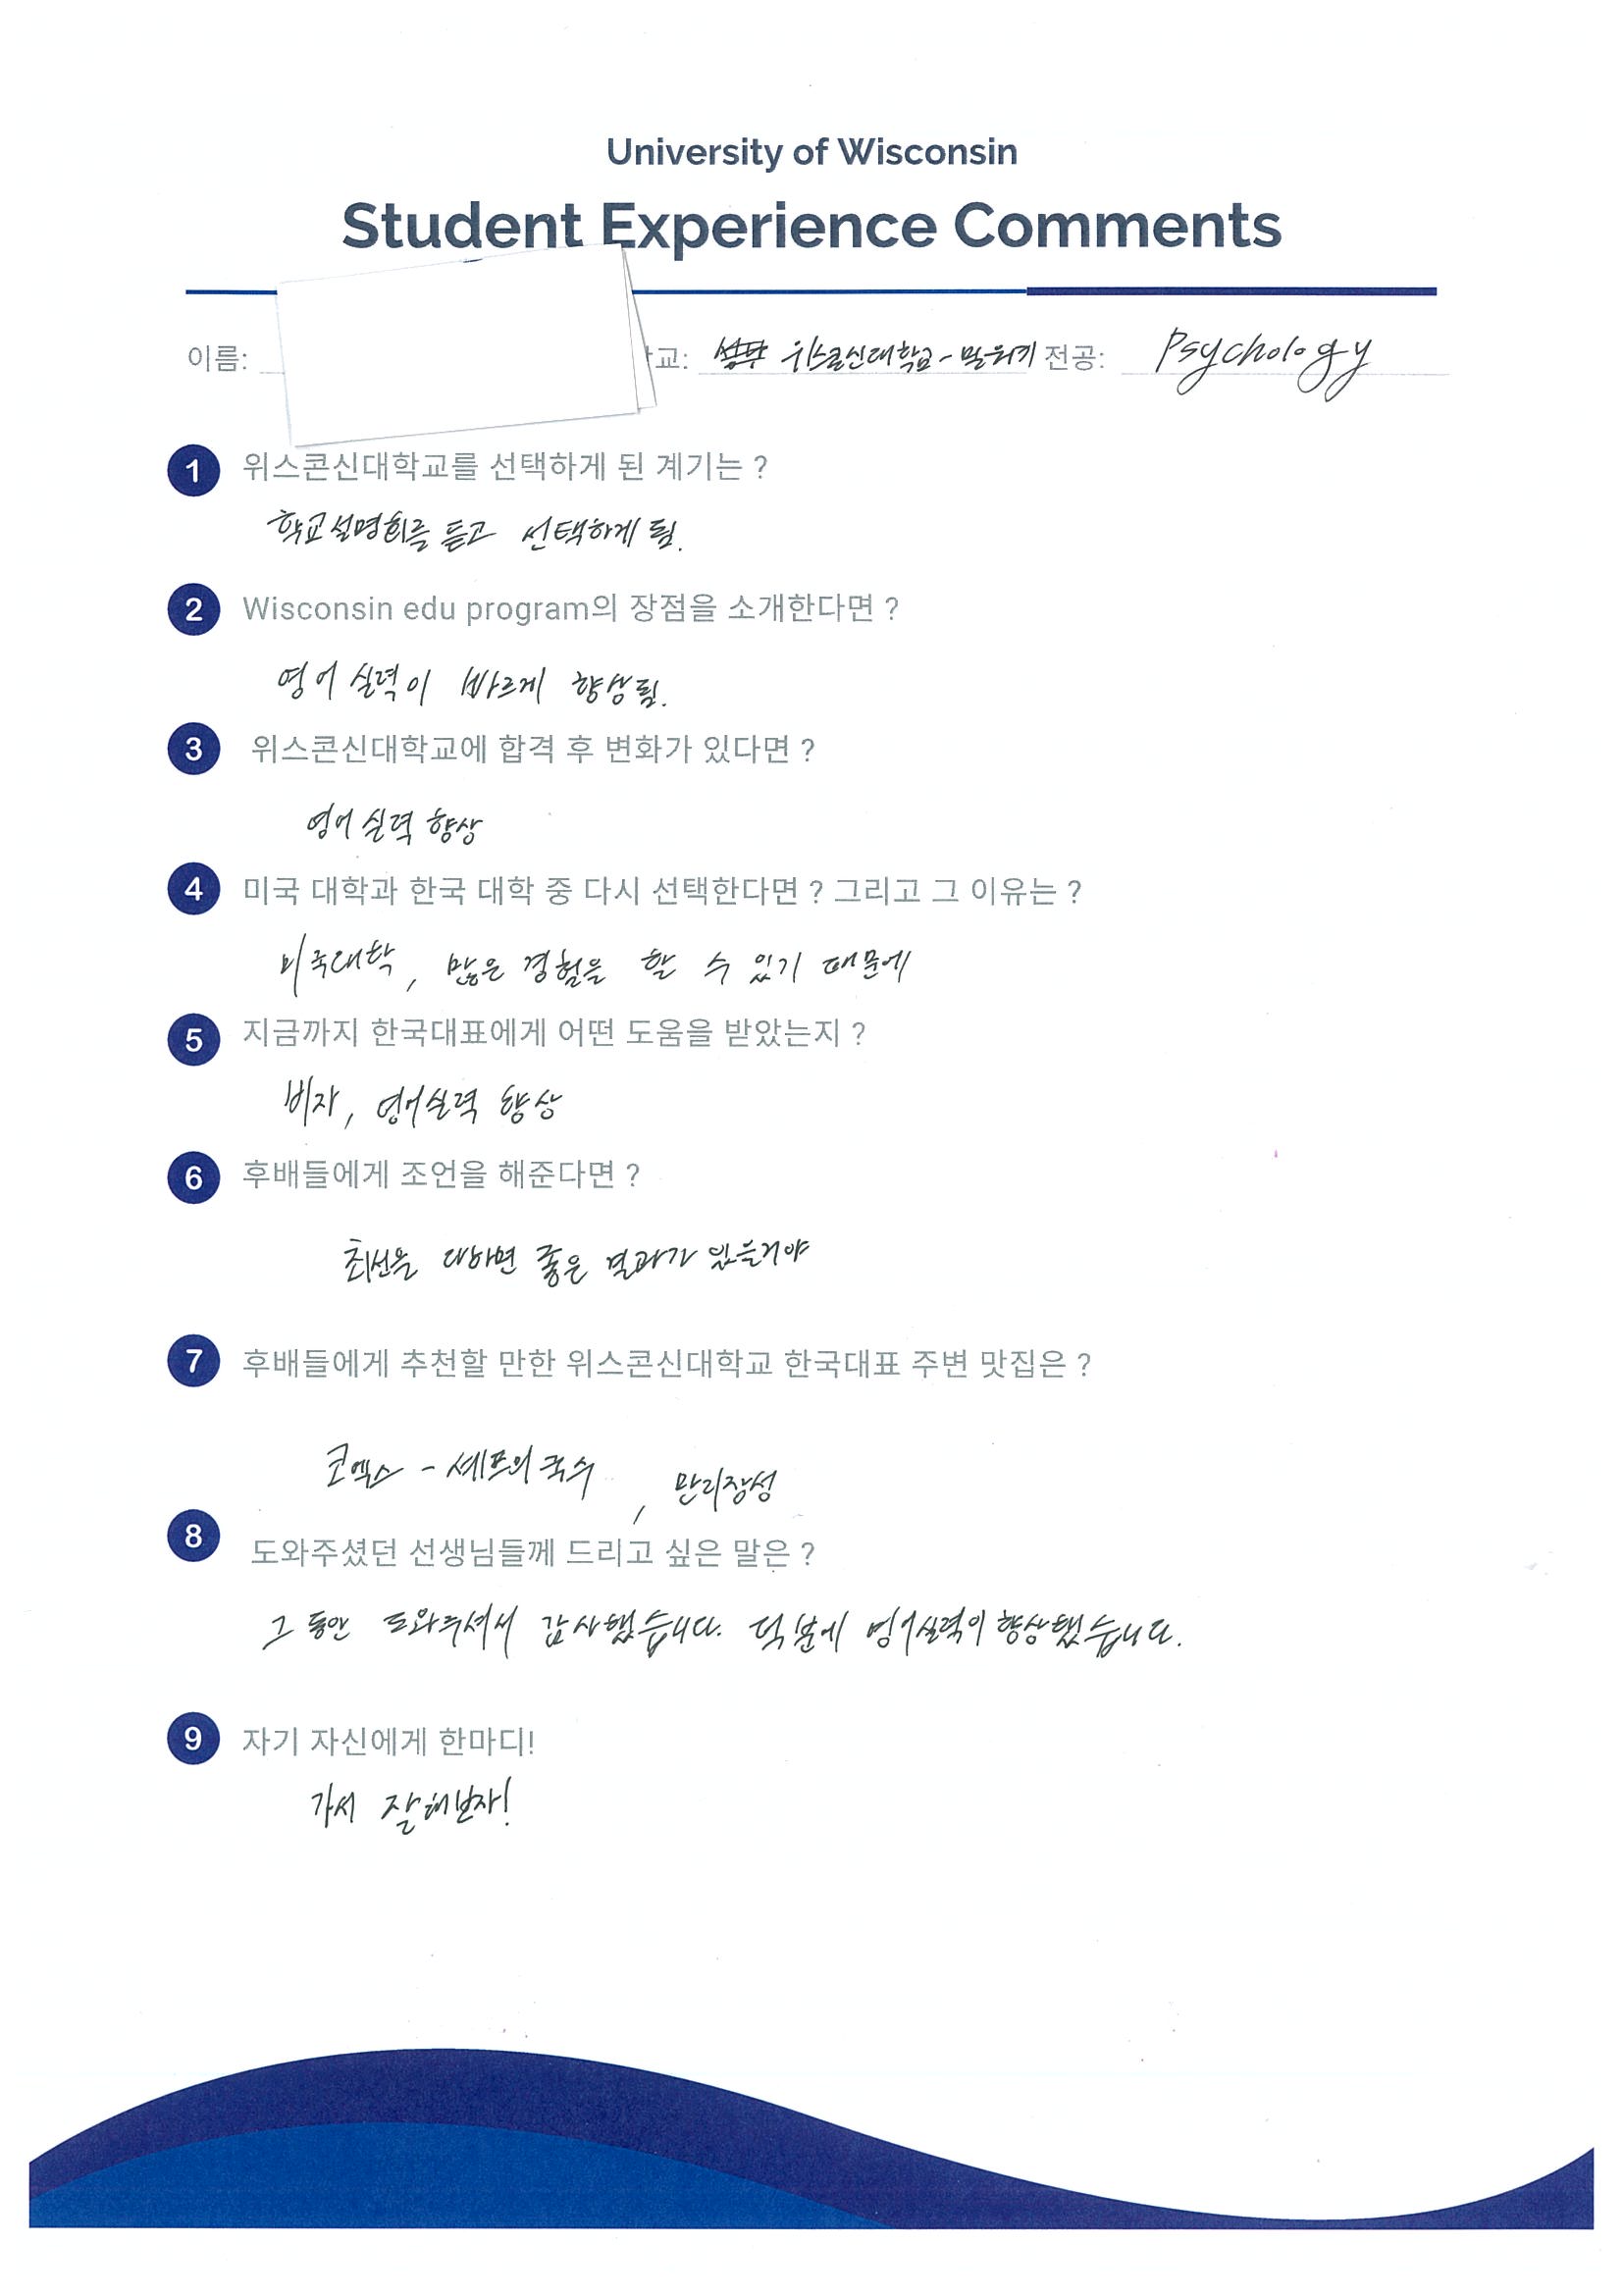 University of Wisconsin
Student Experience Comments
이름: 교: 위스콘신대학교-밀워키 전공: Psychology
1 위스콘신대학교를 선택하게 된 계기는 ?
학교설명회를 듣고 선택하게 됨.
2 Wisconsin edu program의 장점을 소개한다면 ?
영어 실력이 빠르게 향상됨.
3 위스콘신대학교에 합격 후 변화가 있다면 ?
영어 실력 향상
4 미국 대학과 한국 대학 중 다시 선택한다면 ? 그리고 그 이유는 ?
미국대학, 많은 경험을 할 수 있기 때문에
5 지금까지 한국대표에게 어떤 도움을 받았는지 ?
비자, 영어실력 향상
6 후배들에게 조언을 해준다면 ?
최선을 다하면 좋은 결과가 있을거야
7 후배들에게 추천할 만한 위스콘신대학교 한국대표 주변 맛집은 ?
코엑스 - 셰프의 국수, 만리장성
8 도와주셨던 선생님들께 드리고 싶은 말은 ?
그 동안 도와주셔서 감사했습니다. 덕분에 영어실력이 향상했습니다.
9 자기 자신에게 한마디!
가서 잘해보자!